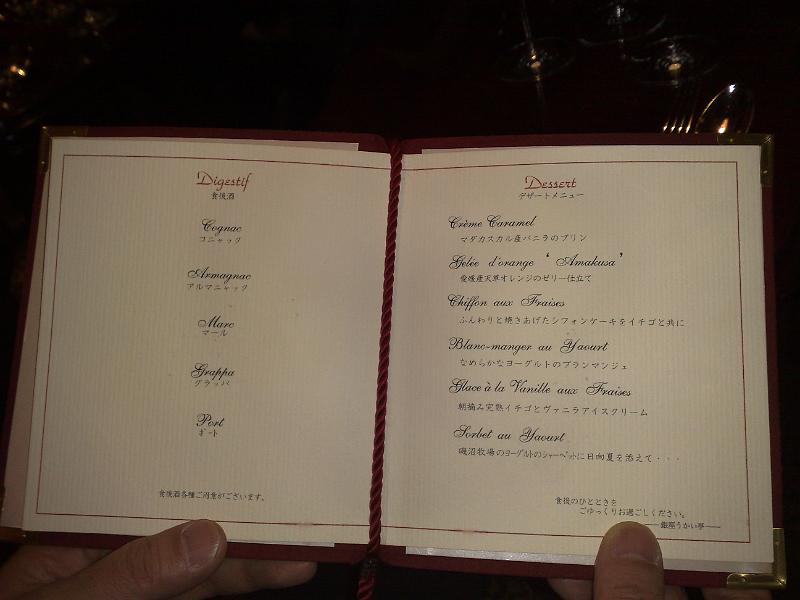 Digestif
食後酒
Cognac
コニャック
Armagnac
アルマニャック
Marc
マール
Grappa
グラッパ
Port
ポート
食後酒各種ご用意がございます。
Dessert
デザートメニュー
Crème Caramel
マダカスカル産バニラのプリン
Gelée d'orange ‘ Amakusa ’
愛媛産天草オレンジのゼリー仕立て
Chiffon aux Fraises
ふんわりと焼きあげたシフォンケーキをイチゴと共に
Blanc-manger au Yaourt
なめらかなヨーグルトのブランマンジェ
Glace à la Vanille aux Fraises
朝摘み完熟イチゴとヴァニラアイスクリーム
Sorbet au Yaourt
磯沼牧場のヨーグルトのシャーベットに日向夏を添えて・・・
食後のひとときを
ごゆっくりお過ごしください。
―銀座うかい亭―